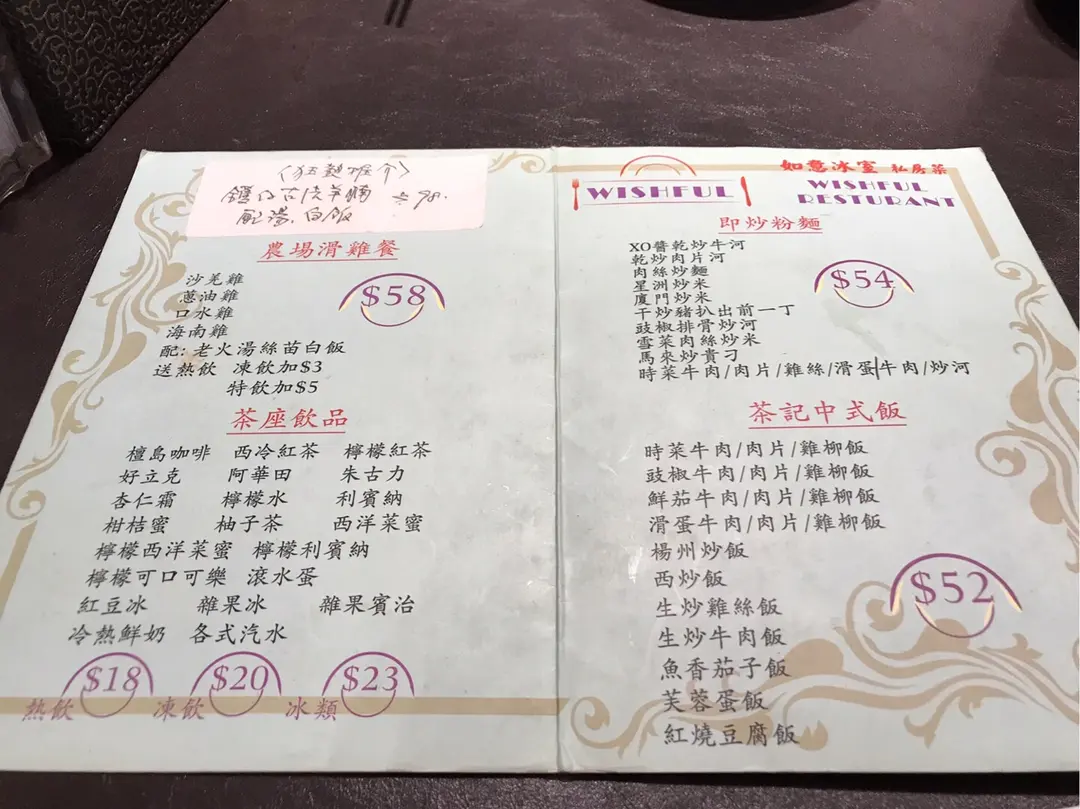 農場滑雞餐
沙羌雞
蔥油雞
口水雞
海南雞
$58
配: 老火湯絲苗白飯
送熱飲 凍飲加$3
特飲加$5
茶座飲品
檀島咖啡 西冷紅茶 檸檬紅茶
好立克 阿華田 朱古力
杏仁霜 檸檬水 利賓納
柑桔蜜 柚子茶 西洋菜蜜
檸檬西洋菜蜜 檸檬利賓納
檸檬可口可樂 滾水蛋
紅豆冰 雜果冰 雜果賓治
冷熱鮮奶 各式汽水
熱飲 $18 凍飲 $20 冰類 $23
WISHFUL
如意冰室 私房菜
WISHFUL
RESTURANT
即炒粉麵
XO醬乾炒牛河
乾炒肉片河
肉絲炒麵
星洲炒米
廈門炒米
干炒豬扒出前一丁
豉椒排骨炒河
雪菜肉絲炒米
馬來炒貴刁
時菜牛肉/肉片/雞絲/滑蛋牛肉/炒河
$54
茶記中式飯
時菜牛肉/肉片/雞柳飯
豉椒牛肉/肉片/雞柳飯
鮮茄牛肉/肉片/雞柳飯
滑蛋牛肉/肉片/雞柳飯
楊州炒飯
西炒飯
生炒雞絲飯
生炒牛肉飯
魚香茄子飯
芙蓉蛋飯
紅燒豆腐飯
$52